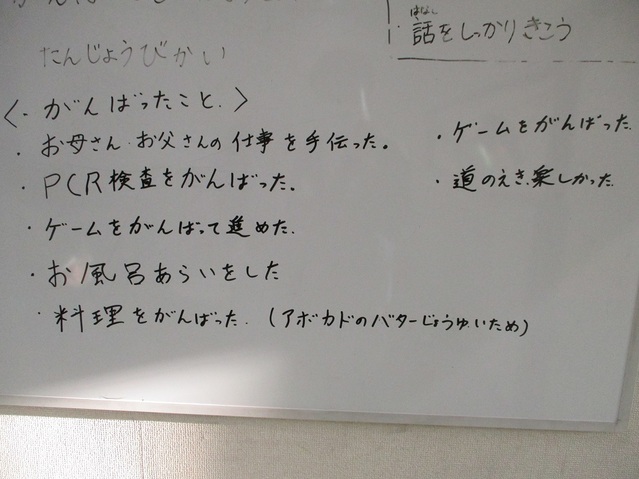 たんじょうびかい
はなし
話をしっかりきこう
〈・がんばったこと.〉
・お母さん・お父さんの仕事を手伝った。
・PCR検査をがんばった。
・ゲームをがんばって進めた.
・お風呂あらいをした
・料理をがんばった.(アボカドのバターじょうゆいため)
・ゲームをがんばった.
・道のえき.楽しかった.